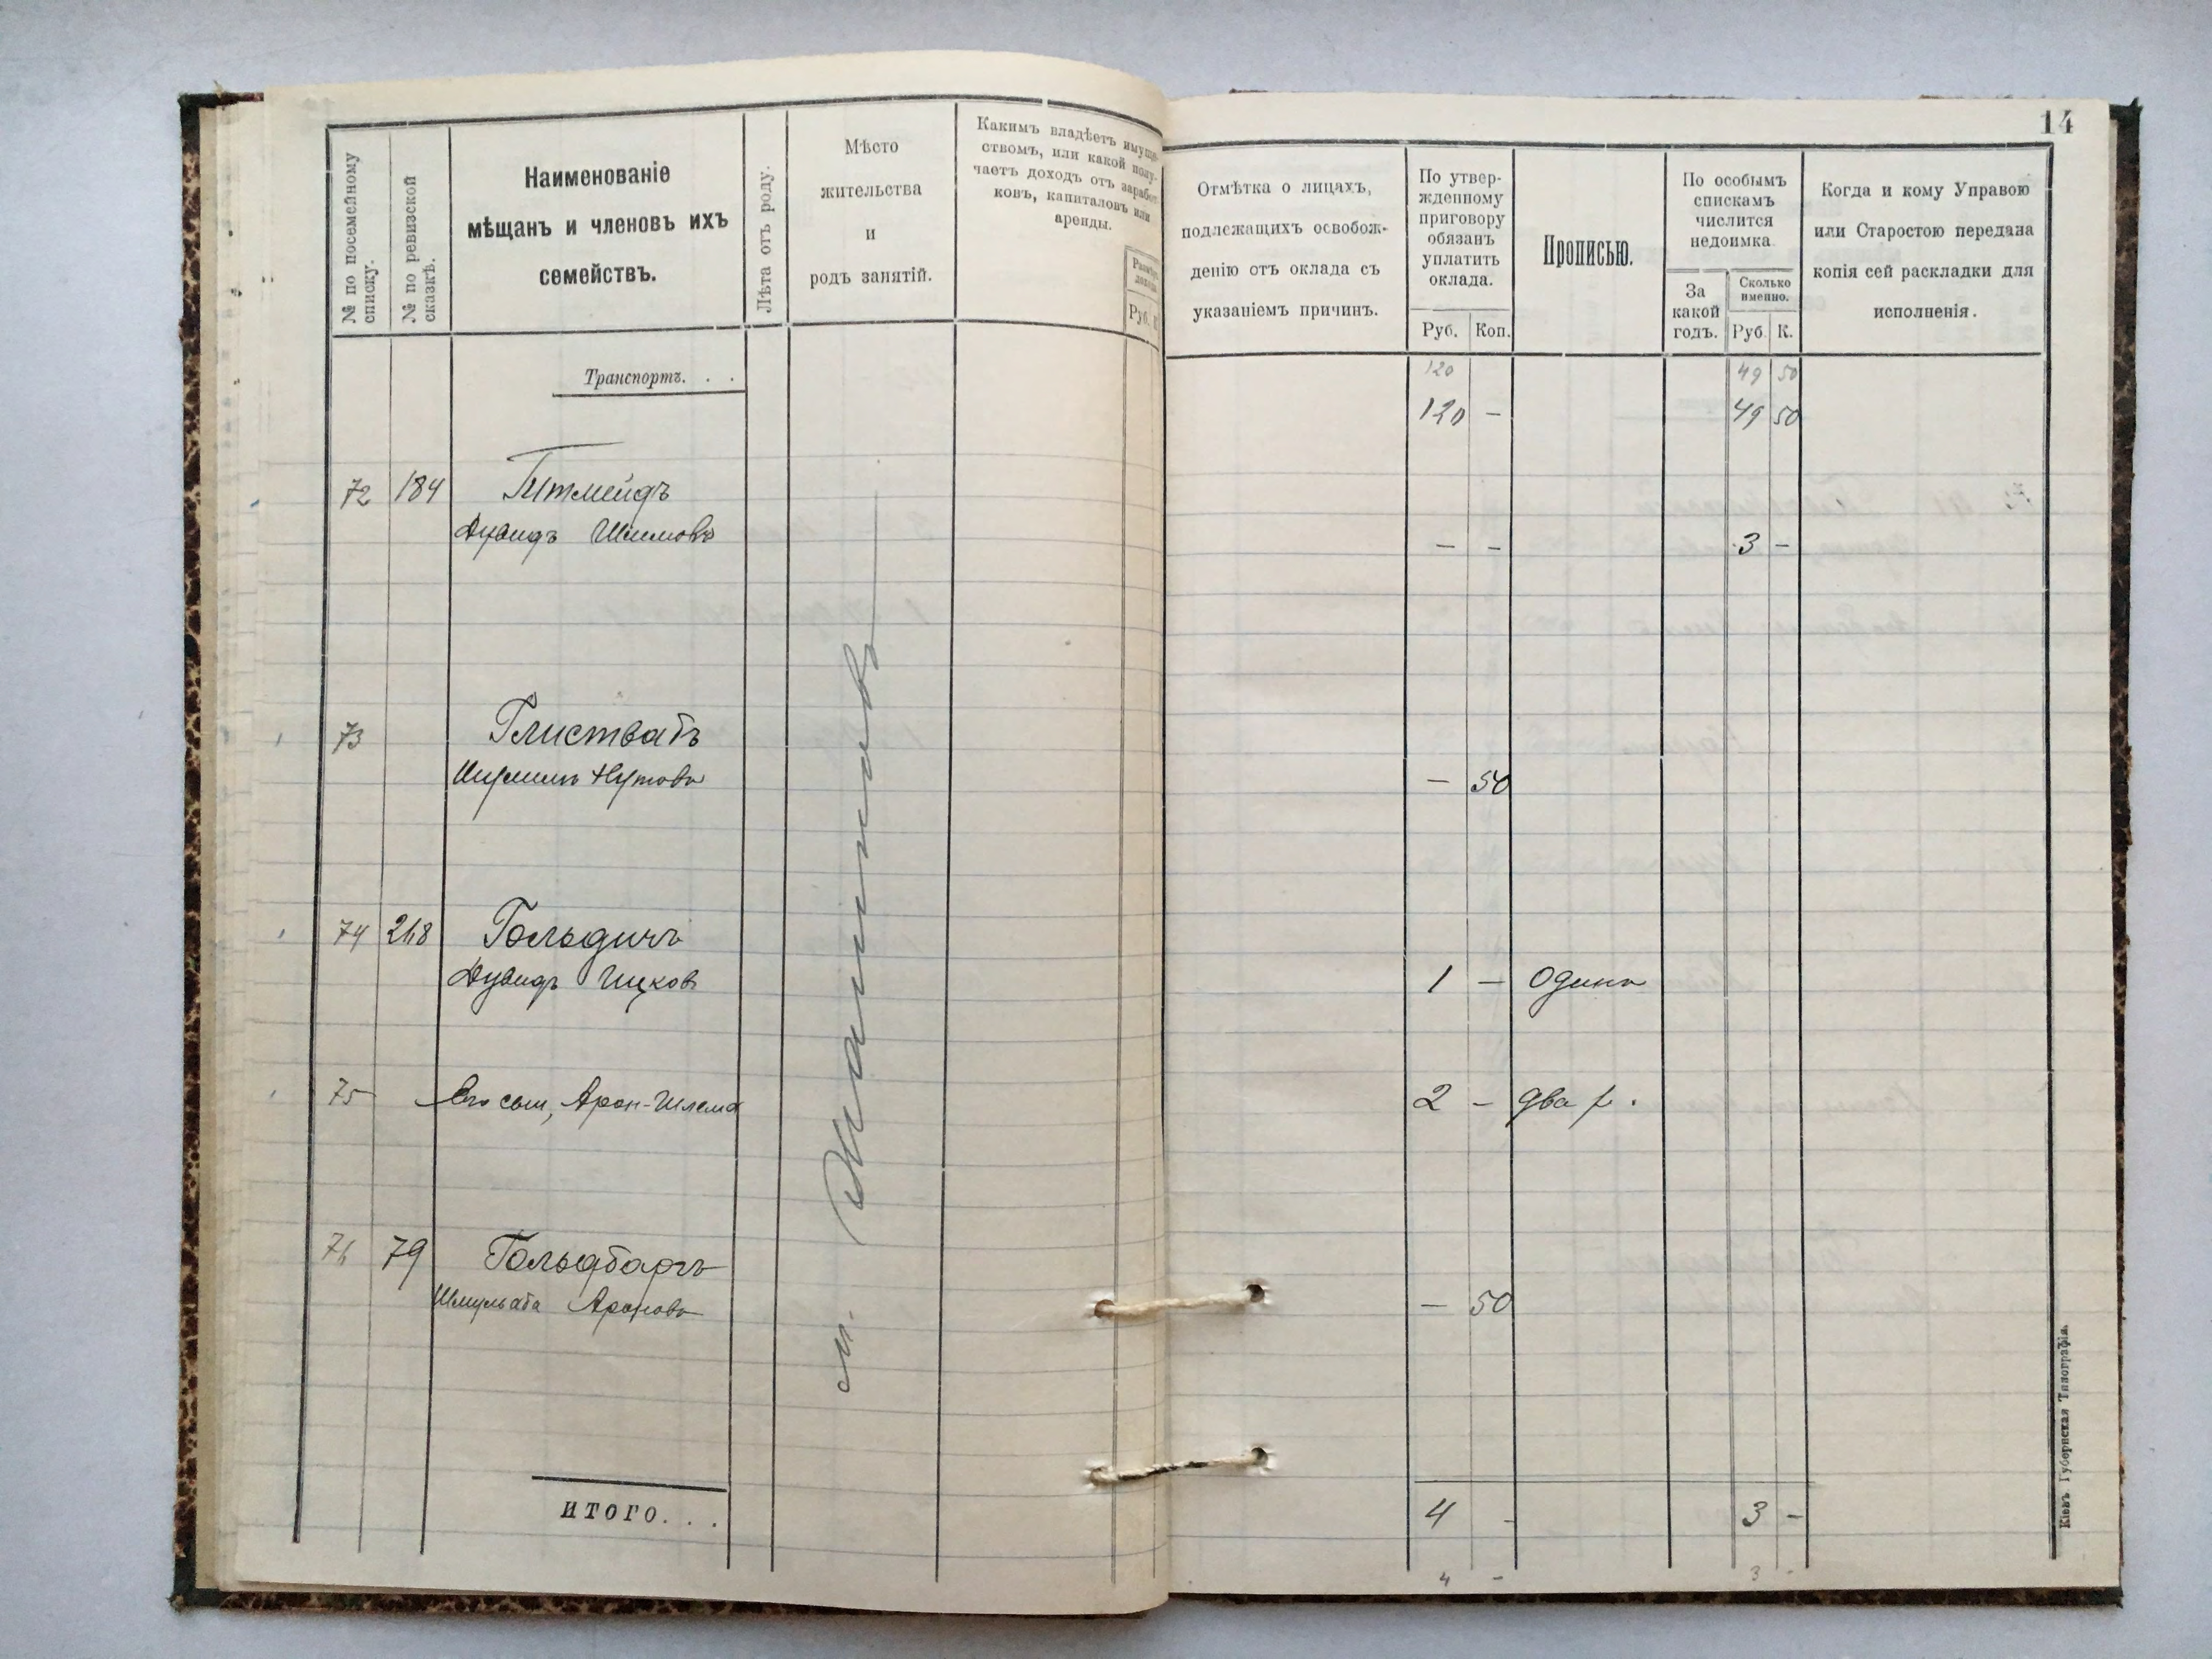 14
№ по посемейному
списку.
№ по ревизской
сказкѣ.
Наименованіе
мѣщанъ и членовъ ихъ
семействъ.
Лѣта отъ роду.
Мѣсто
жительства
и
родъ занятій.
Какимъ владѣетъ имуще-
ствомъ, или какой полу-
чаетъ доходъ отъ заработ-
ковъ, капиталовъ или
аренды.
Руб.
Отмѣтка о лицахъ,
подлежащихъ освобож-
денію отъ оклада съ
указаніемъ причинъ.
По утвер-
жденному
приговору
обязанъ
уплатить
оклада.
Руб. Коп.
Прописью.
По особымъ
спискамъ
числится
недоимка
За
какой
годъ.
Сколько
именно.
Руб. К.
Когда и кому Управою
или Старостою передана
копія сей раскладки для
исполненія.
Транспортъ. . .
120 49 50
120 - 49 50
72 184
Дувидъ - - 3 -
73
- 50
74 218 Гольдичъ
Дувидъ Ицков 1 - Одинъ
75 Его сын, Арон-Шлема 2 - два р.
76 79 Гольдбаргъ
Ароновъ - 50
м.
ИТОГО. . . 4 - 3 -
4 - 3 -
Кіевъ Губернская Типографія.